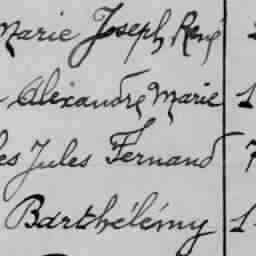 Marie Joseph René
Alexandre Marie 1
es Jules Fernand 7
Barthélémy 1